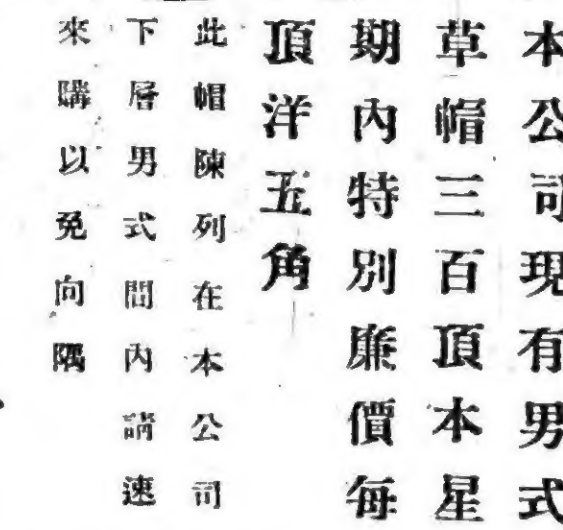 本公司現有男式
草帽三百頂本星
期內特別廉價每
頂洋五角
此帽陳列在本公司
下層男式間內請速
來購以免向隅